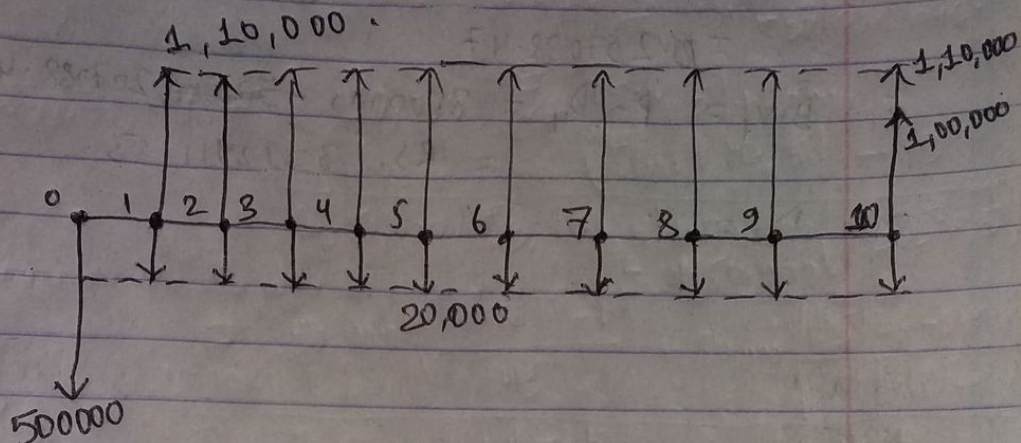 1,10,000.
1,10,000
1,00,000
0 1 2 3 4 5 6 7 8 9 10
20,000
500000